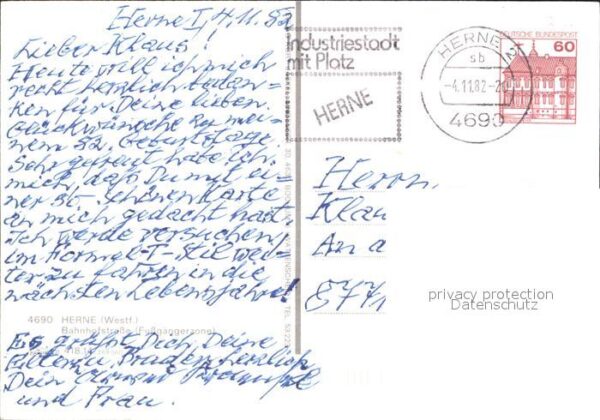 Herne I, 4.11.82
Lieber Klaus!
Heute will ich mich
recht herzlich bedan-
ken für Deine lieben
Glückwünsche zu mei-
nem 52. Geburtstage.
Sehr gefreut habe ich
mich, daß Du mit ei-
ner so schönen Karte
an mich gedacht hast.
Ich werde versuchen,
im Formel-I-Stil wei-
ter zu fahren in die
nächsten Lebensjahre!
4690 HERNE (Westf.)
Bahnhofstraße (Fußgängerzone)
Es grüßt Dich, Deine
Eltern u. Bruder herzlich
Dein
und Frau.
Industriestadt
mit Platz
HERNE
HERNE 2
sb
-4.11.82-2
4690
DEUTSCHE BUNDESPOST
60
Herrn
Klau
An d
privacy protection
Datenschutz